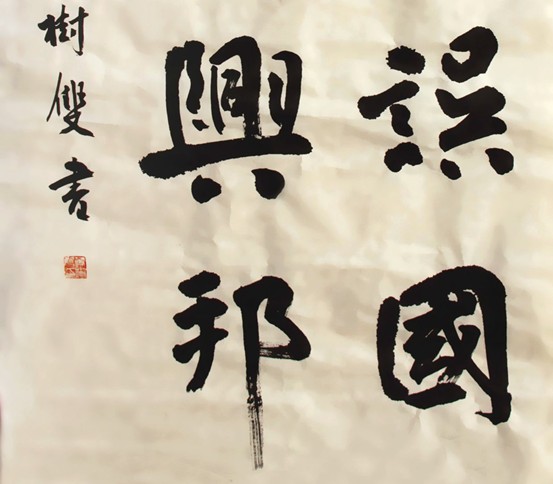 誤國
興邦
樹雙書